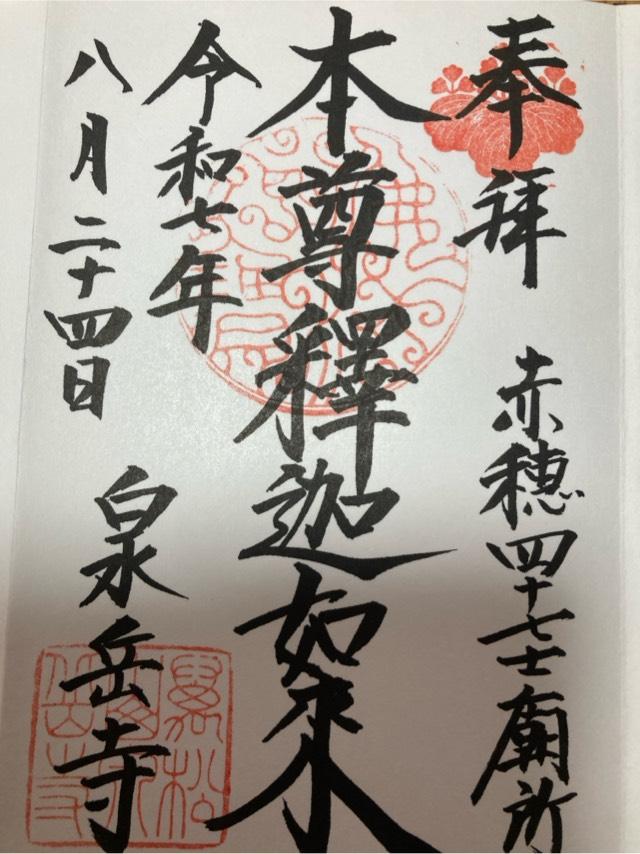 奉拝 赤穂四十七士廟所
本尊釋迦如来
令和七年
八月二十四日
泉岳寺